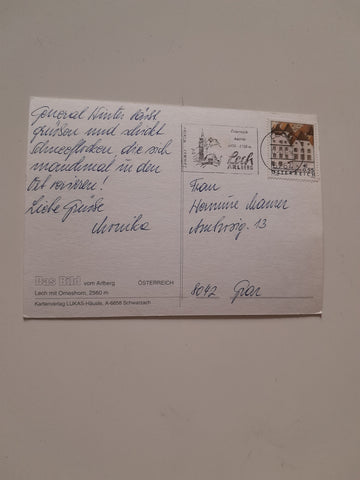 General Winter lässt
grüßen und schickt
Schneeflocken, die sich
manchmal in den
Ort verirren!
Liebe Grüße
Monika
Das Bild vom Arlberg ÖSTERREICH
Lech mit Omeshorn, 2560 m
Kartenverlag LUKAS-Häusle, A-6858 Schwarzach
Lech
ARLBERG
ÖSTERREICH
Frau
Hermine Maurer
13
8042 Graz